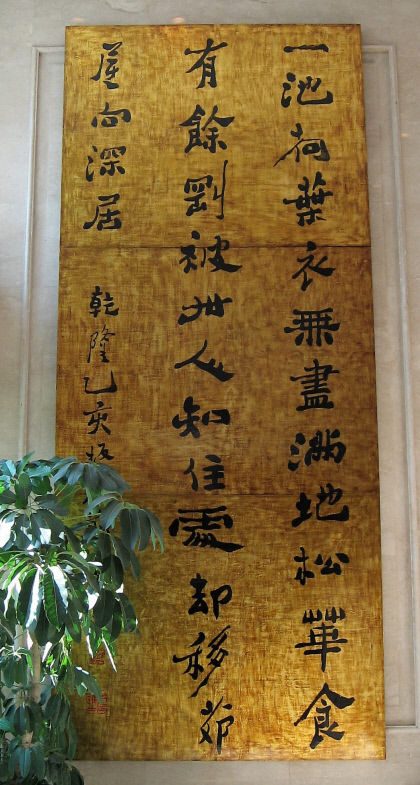 一池荷葉衣無盡滿地松華食
有餘剛被世人知住處却移茆
屋向深居
乾隆乙亥板